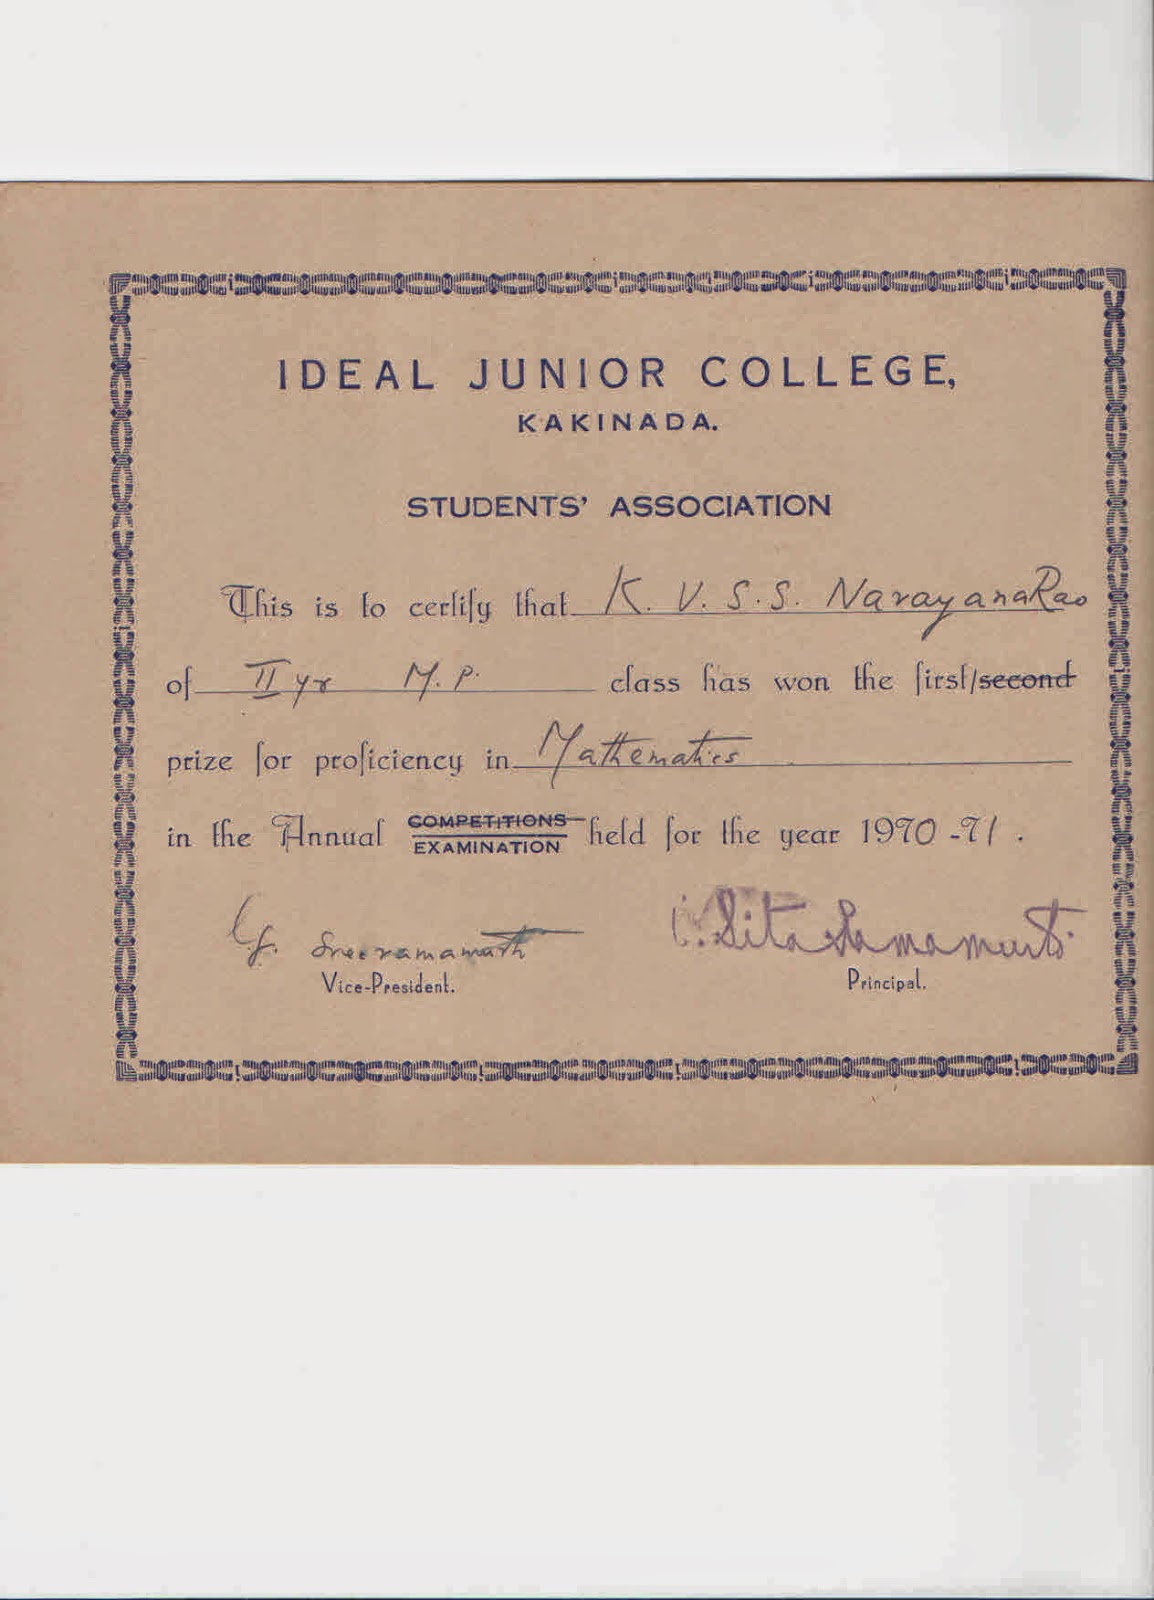 IDEAL JUNIOR COLLEGE,
KAKINADA.
STUDENTS' ASSOCIATION
This is to certify that K. V. S. S. NarayanaRao
of II yr M. P. class has won the first/second
prize for proficiency in Mathematics
in the Annual COMPETITIONS
EXAMINATION held for the year 1970-71.
Sreeramamurth
Vice-President.
Sita Ramamurti
Principal.